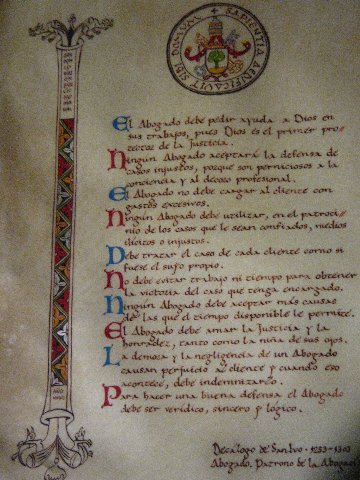 SAPIENTIA AEDIFICAVIT SIBI DOMUM
El Abogado debe pedir ayuda a Dios en
sus trabajos, pues Dios es el primer pro-
tector de la Justicia.
Ningún Abogado aceptará la defensa de
casos injustos, porque son perniciosos a la
conciencia y al decoro profesional.
El Abogado no debe cargar al cliente con
gastos excesivos.
Ningún Abogado debe utilizar, en el patroci-
nio de los casos que le sean confiados, medios
ilícitos o injustos.
Debe tratar el caso de cada cliente como si
fuese el suyo propio.
No debe evitar trabajo ni tiempo para obtener
la victoria del caso que tenga encargado.
Ningún Abogado debe aceptar más causas
de las que el tiempo disponible le permite.
El Abogado debe amar la Justicia y la
honradez, tanto como la niña de sus ojos.
La demora y la negligencia de un Abogado
causan perjuicio al cliente y cuando eso
acontece, debe indemnizarlo.
Para hacer una buena defensa el Abogado
debe ser verídico, sincero y lógico.
Decálogo de San Ivo - 1253-1303
Abogado, Patrono de la Abogací